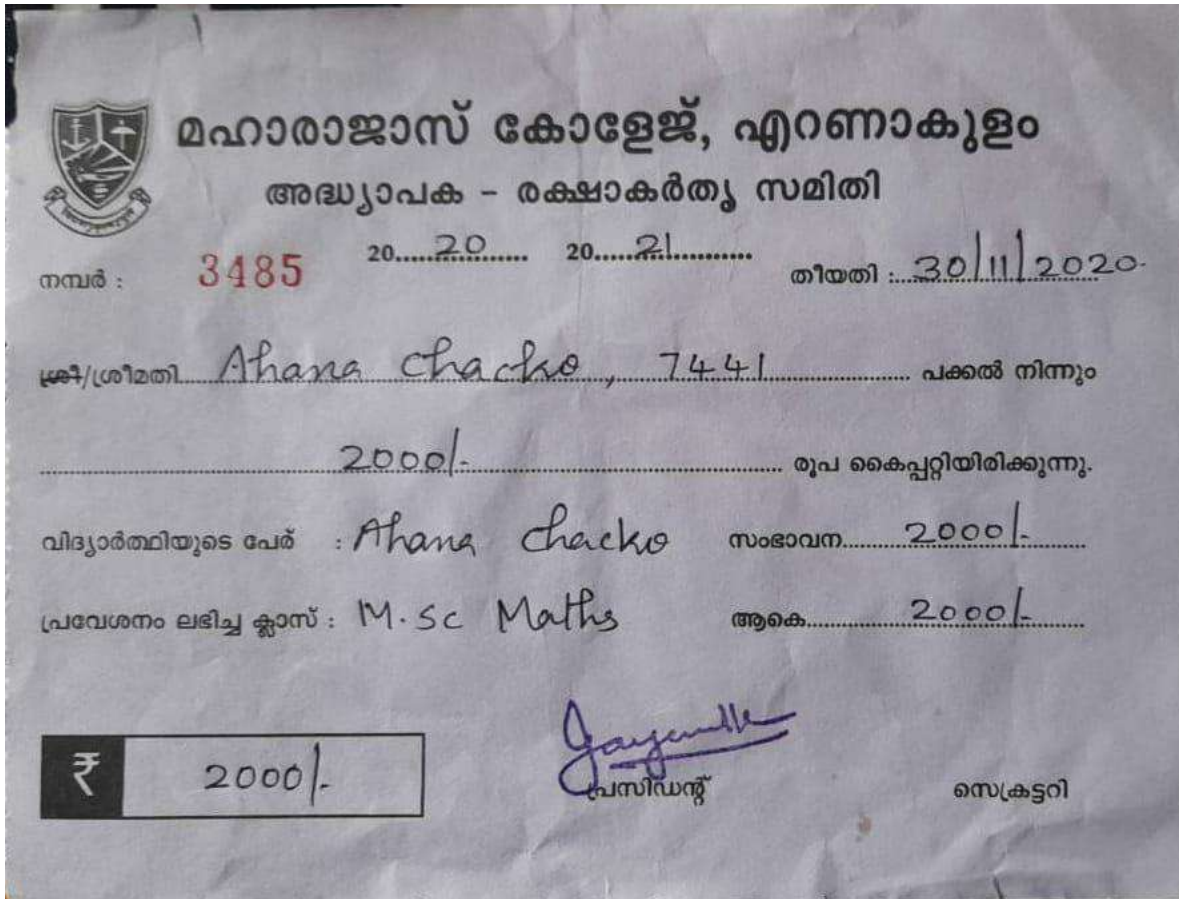 മഹാരാജാസ് കോളേജ്, എറണാകുളം
അദ്ധ്യാപക - രക്ഷാകർതൃ സമിതി
20.....20...... 20.....21............
നമ്പർ : 3485 തീയതി : 30/11/2020.
ശ്രീ/ശ്രീമതി Ahana Chacko, 7441 പക്കൽ നിന്നും
2000/- രൂപ കൈപ്പറ്റിയിരിക്കുന്നു.
വിദ്യാർത്ഥിയുടെ പേര് : Ahana Chacko സംഭാവന 2000/-
പ്രവേശനം ലഭിച്ച ക്ലാസ് : M.Sc Maths ആകെ 2000/-
₹ 2000/-
പ്രസിഡന്റ് സെക്രട്ടറി